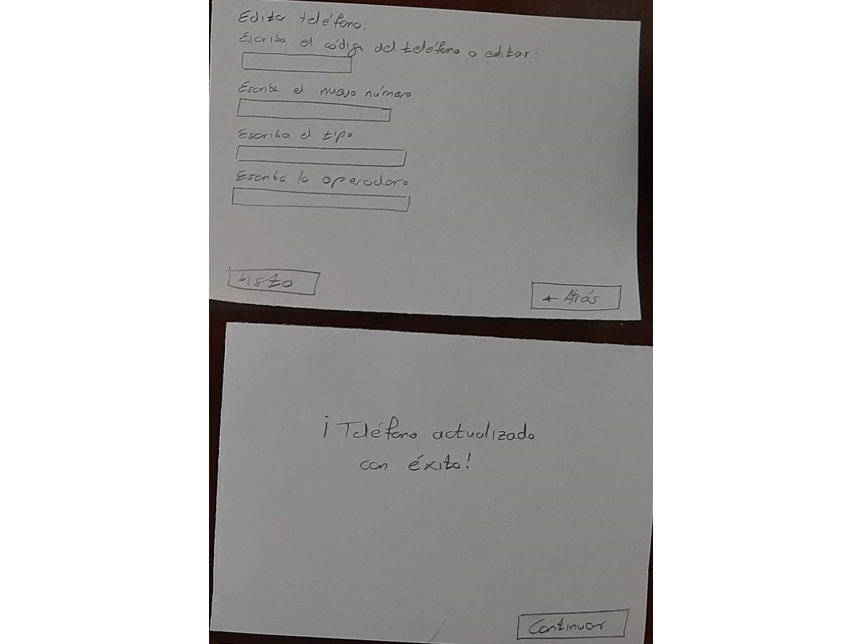 Editar teléfono:
Escriba el código del teléfono a editar:
Escriba el nuevo número
Escriba el tipo
Escriba la operadora
Listo
← Atrás
¡Teléfono actualizado
con éxito!
Continuar